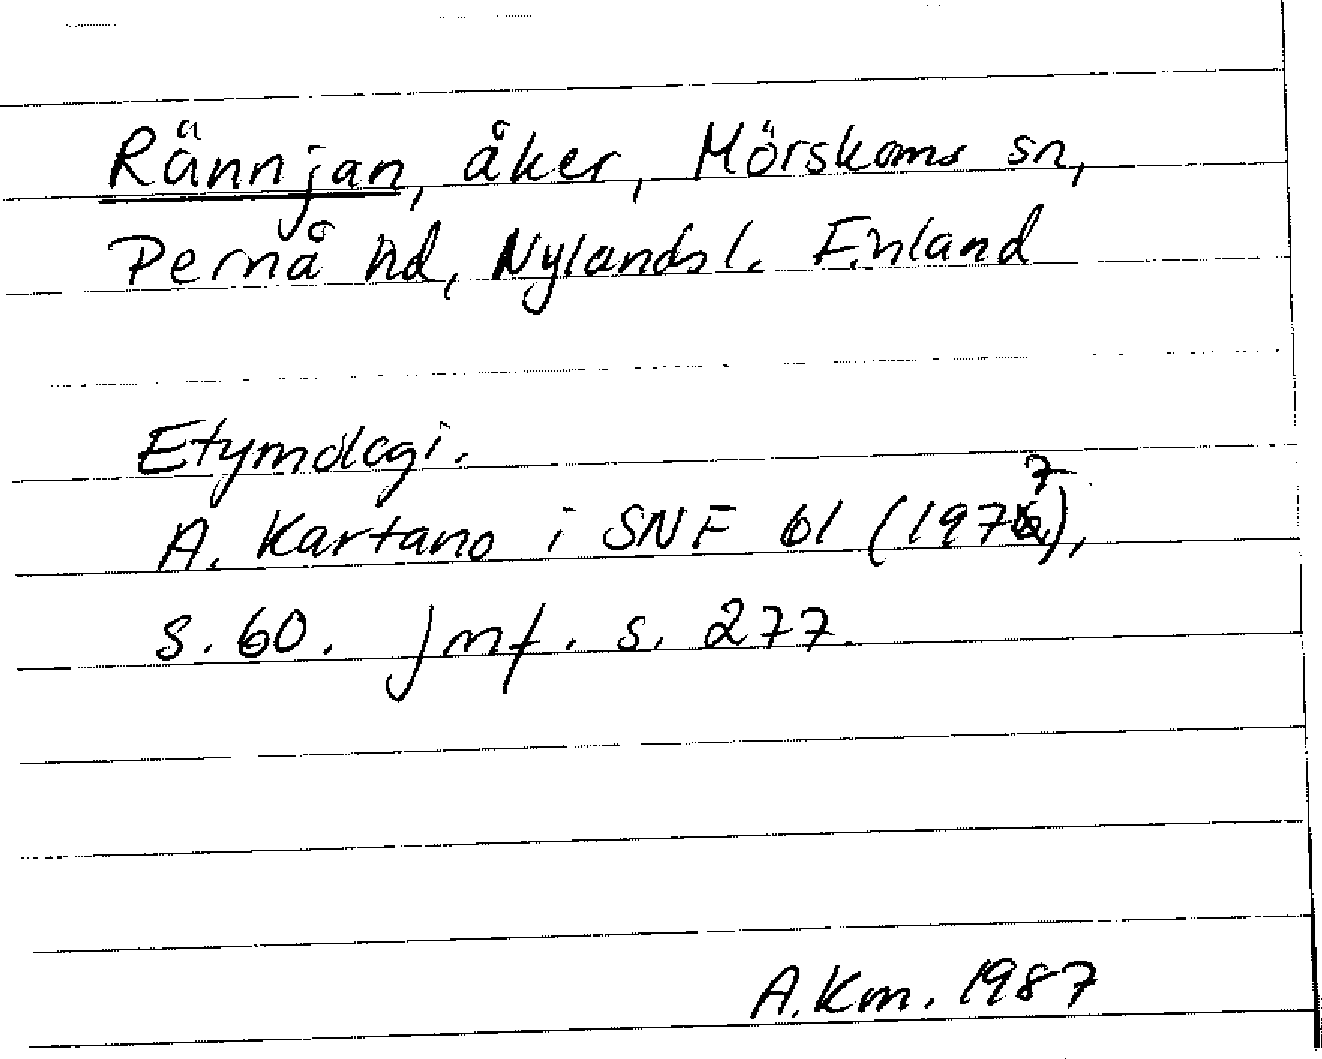 Rännjan, åker, Mörskoms sn,
Pernå hd, Nylands l. Finland
Etymologi.
A. Kartano i SNF 61 (1977),
s. 60. Jmf. s. 277.
A.Km. 1987